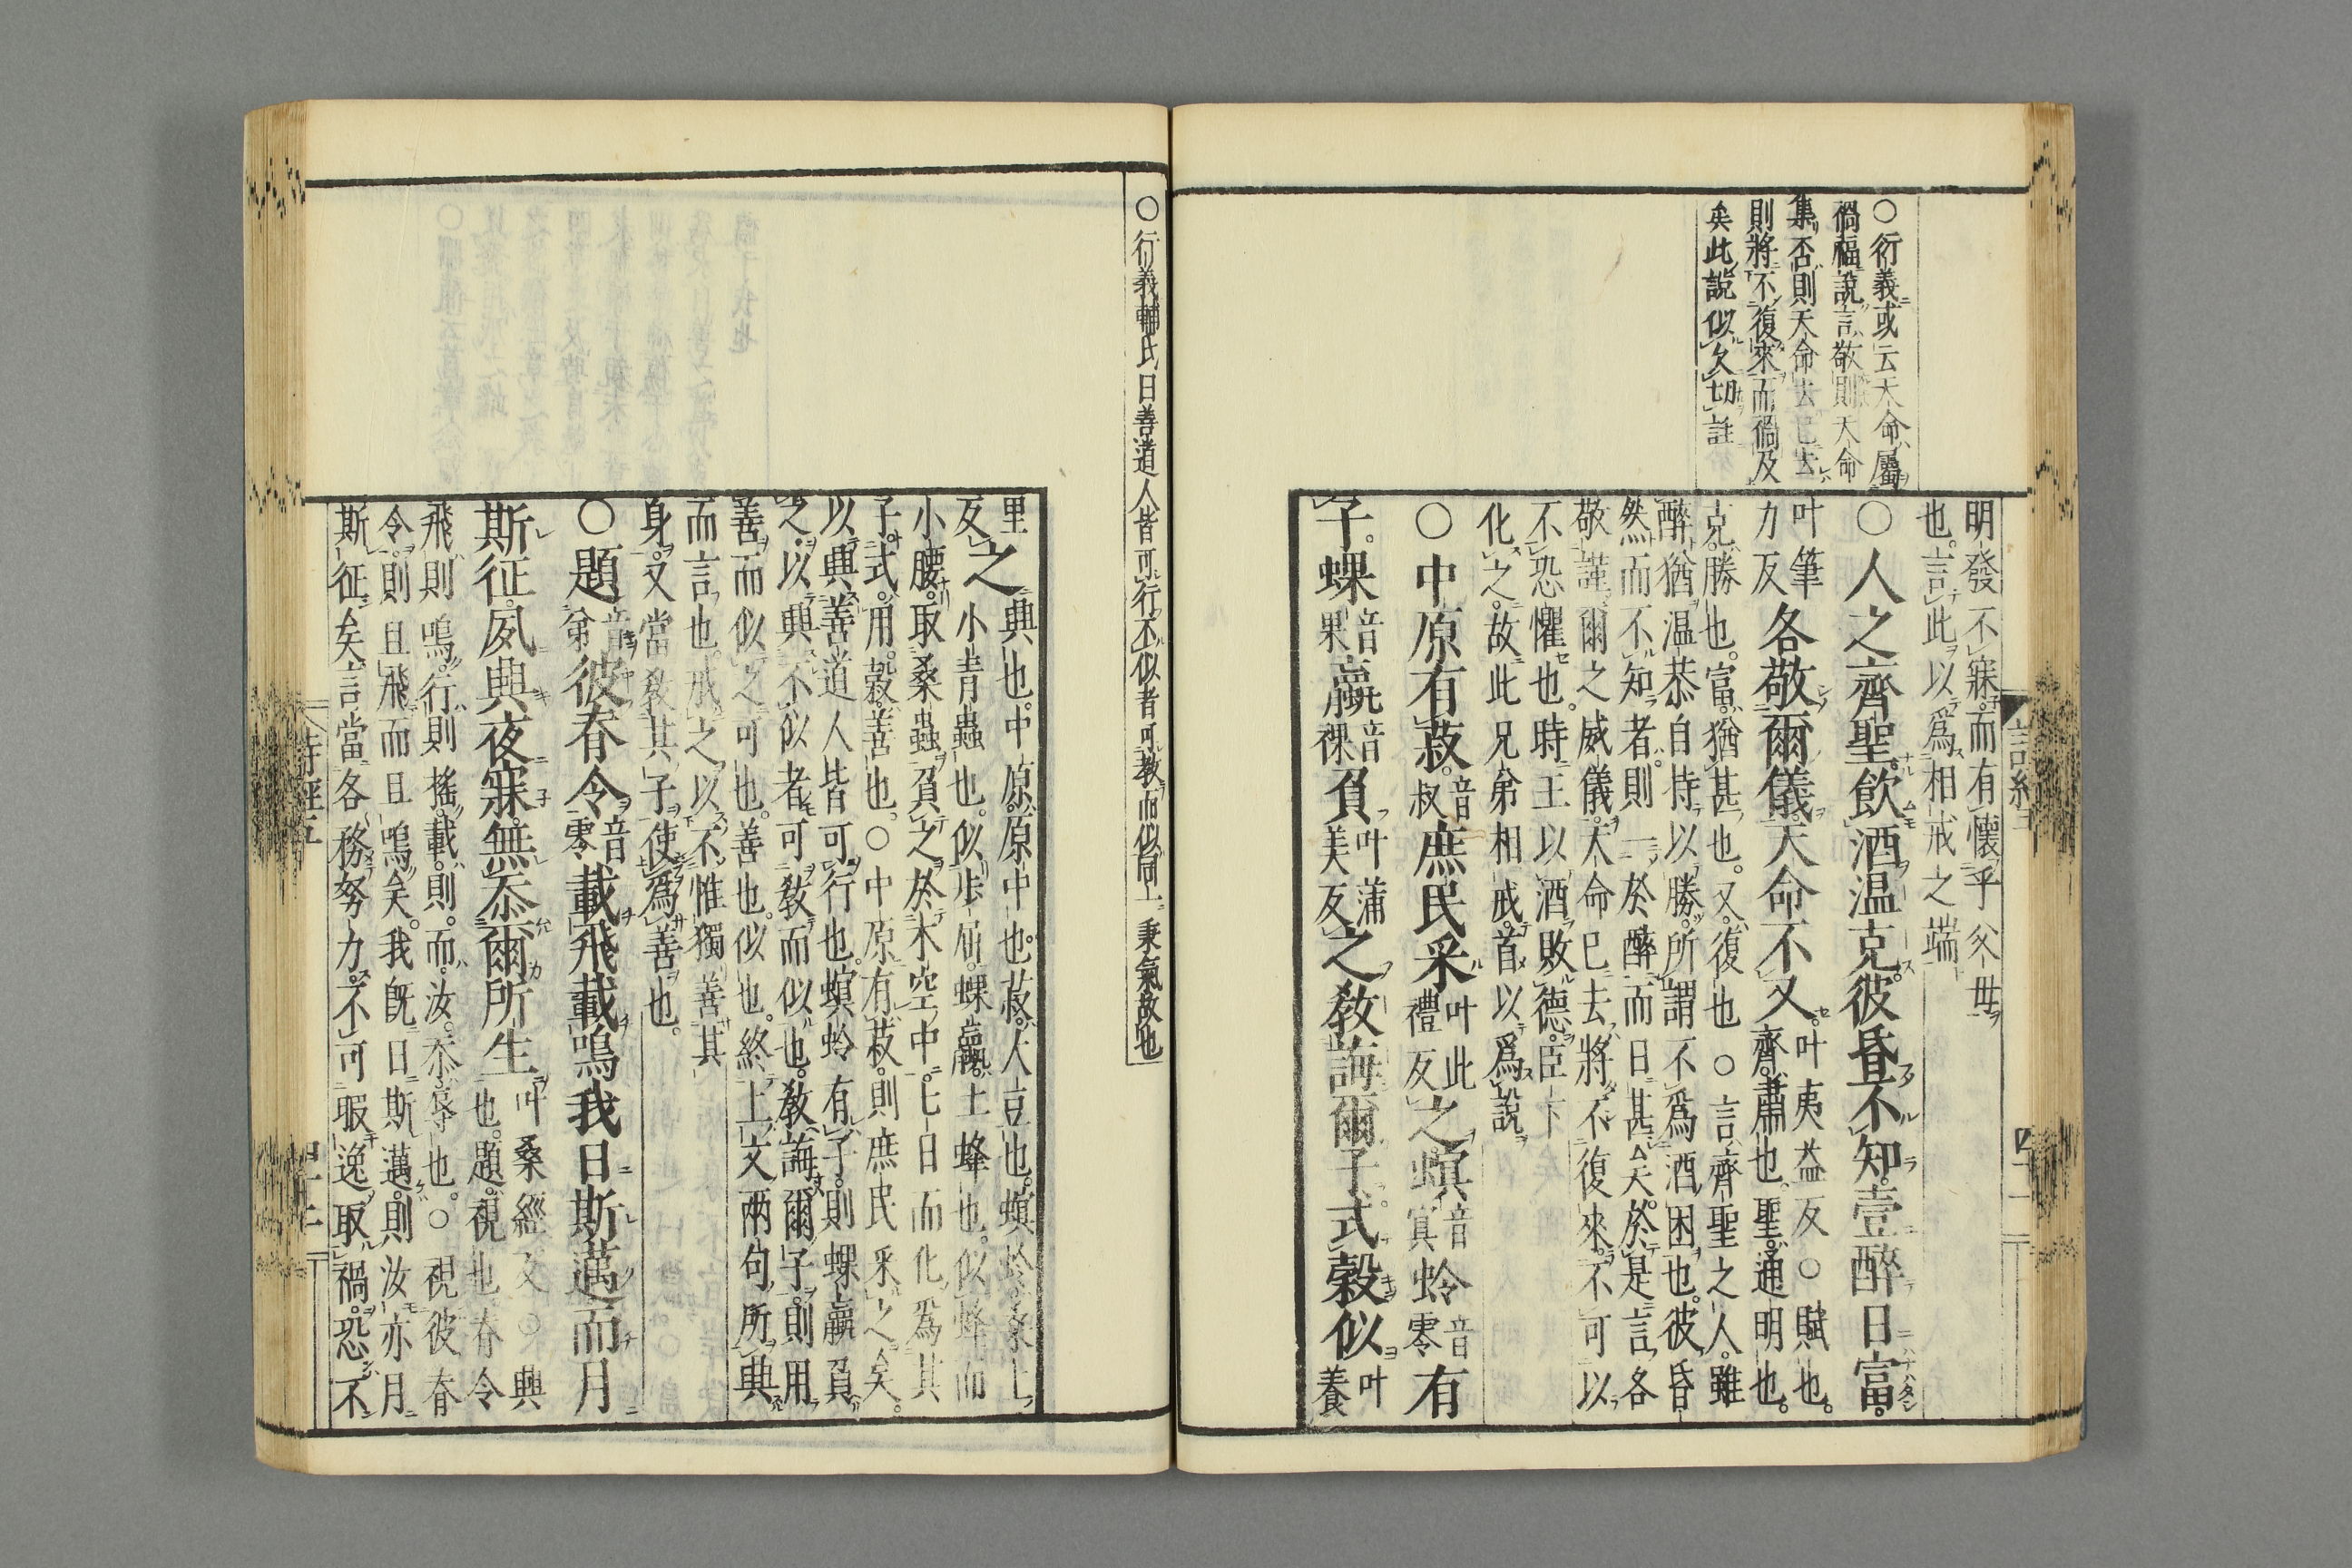 ○衍義或云天命屬
禍福說言敬則天命
集否則天命去已去
則將不復來而禍及
矣此說似欠切註
明發不寐而有懷乎父母
也言此以爲相戒之端
○人之齊聖飮酒温克彼昏不知壹醉日富
叶筆
力反
各敬爾儀天命不又
叶夷益反○賦也
齊肅也聖通明也
克勝也富猶甚也又復也○言齊聖之人雖
醉猶温恭自持以勝所謂不爲酒困也彼昏
然而不知者則一於醉而日甚矣於是言各
敬謹爾之威儀天命已去將不復來不可以
不恐懼也時王以酒敗德臣下
化之故此兄弟相戒首以爲說
○中原有菽音叔庶民采叶此禮反之螟音冥蛉音零有
子蜾音果蠃音裸負叶蒲美反之敎誨爾子式榖似叶養
○衍義輔氏曰善道人皆可行不似者可敎而似同上秉氣故也
里反之
興也中原原中也菽大豆也螟蛉桑上
小青蟲也似步屈蜾蠃土蜂也似蜂而
小腰取桑蟲負之於木空中七日而化爲其
子式用榖善也○中原有菽則庶民采之矣
以興善道人皆可行也螟蛉有子則蜾蠃負
之以興不似者可敎而似也敎誨爾子則用
善而似之可也善也似也終上文兩句所興
而言也戒之以不惟獨善其
身又當敎其子使爲善也
○題音第彼脊令音零載飛載鳴我日斯邁而月
斯征夙興夜寐無忝爾所生叶桑經反○興也題視也脊令
飛則鳴行則搖載則而汝忝辱也○視彼脊
令則且飛而且鳴矣我既日斯邁則汝亦月
斯征矣言當各務努力不可暇逸取禍恐不
詩經五
四十二